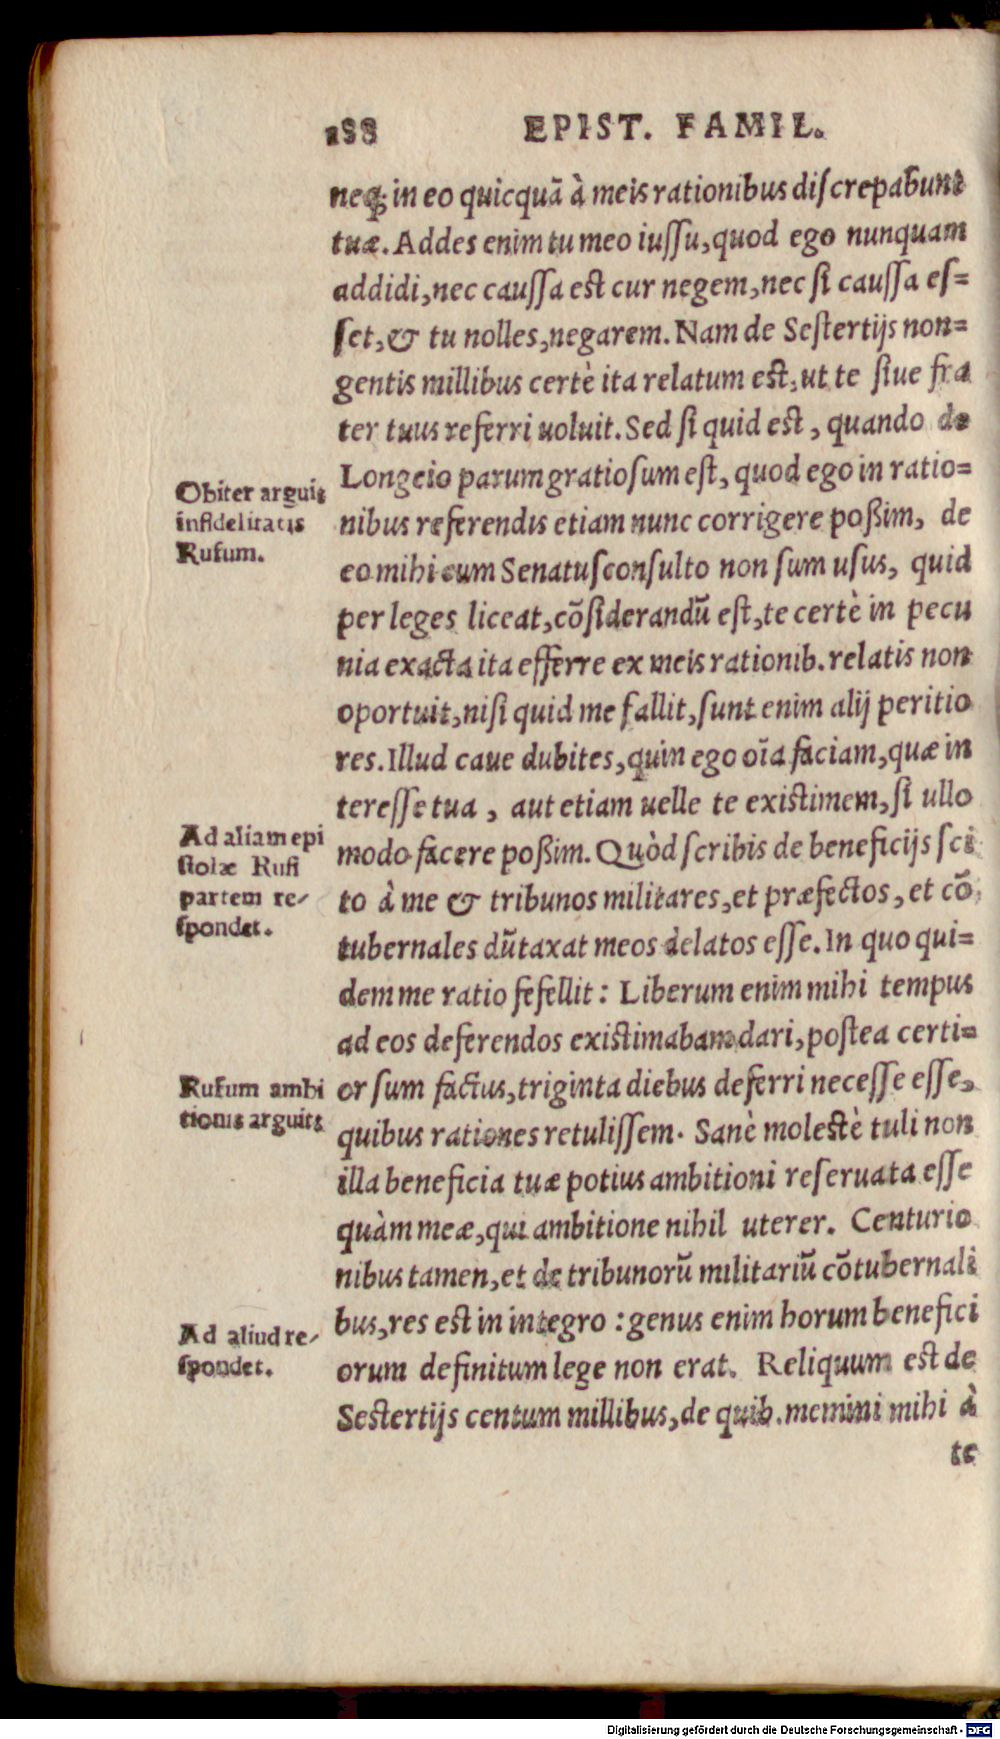 188 EPIST. FAMIL.
neq; in eo quicquā à meis rationibus discrepabunt
tuæ. Addes enim tu meo iussu, quod ego nunquam
addidi, nec caussa est cur negem, nec si caussa es=
set, & tu nolles, negarem. Nam de Sestertijs non=
gentis millibus certè ita relatum est, ut te siue fra
ter tuus referri uoluit. Sed si quid est, quando de
Longeio parum gratiosum est, quod ego in ratio=
nibus referendis etiam nunc corrigere poßim, de
eo mihi cum Senatusconsulto non sum usus, quid
per leges liceat, cōsiderandū est, te certè in pecu
nia exacta ita efferre ex meis rationib. relatis non
oportuit, nisi quid me fallit, sunt enim alij peritio
res. Illud caue dubites, quin ego oīa faciam, quæ in
teresse tua, aut etiam uelle te existimem, si ullo
modo facere poßim. Quòd scribis de beneficijs sci
to à me & tribunos militares, et præfectos, et cō
tubernales dūtaxat meos delatos esse. In quo qui=
dem me ratio fefellit: Liberum enim mihi tempus
ad eos deferendos existimabam dari, postea certi=
or sum factus, triginta diebus deferri necesse esse,
quibus rationes retulissem. Sanè molestè tuli non
illa beneficia tuæ potius ambitioni reseruata esse
quàm meæ, qui ambitione nihil uterer. Centurio
nibus tamen, et de tribunorū militariū cōtubernali
bus, res est in integro: genus enim horum benefici
orum definitum lege non erat. Reliquum est de
Sestertijs centum millibus, de quib. memini mihi à
te
Obiter arguit
infidelitatis
Rufum.
Ad aliam epi
stolæ Rufi
partem re-
spondet.
Rufum ambi
tionis arguit.
Ad aliud re-
spondet.
Digitalisierung gefördert durch die Deutsche Forschungsgemeinschaft - DFG